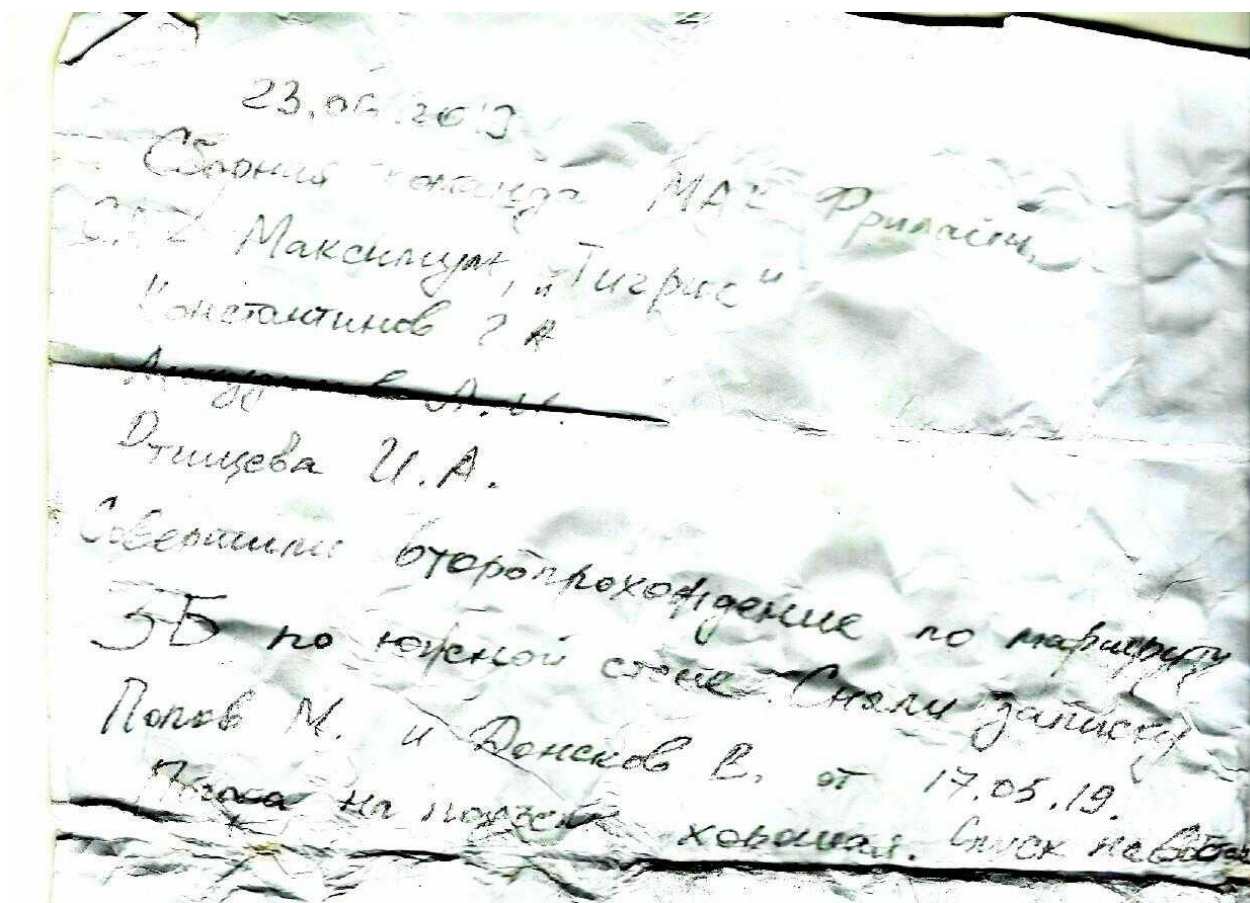 23.06 2019
Сборная команда МАЕ Фрилайн,
Максимум, "Тигрис"
Константинов Г А
А.И.
Птищева И.А.
Совершили второпрохождение по маршруту
3Б по южной стене. Сняли записку
Попов М. и Донсков В. от 17.05.19.
Погода на подъем хорошая. Спуск по